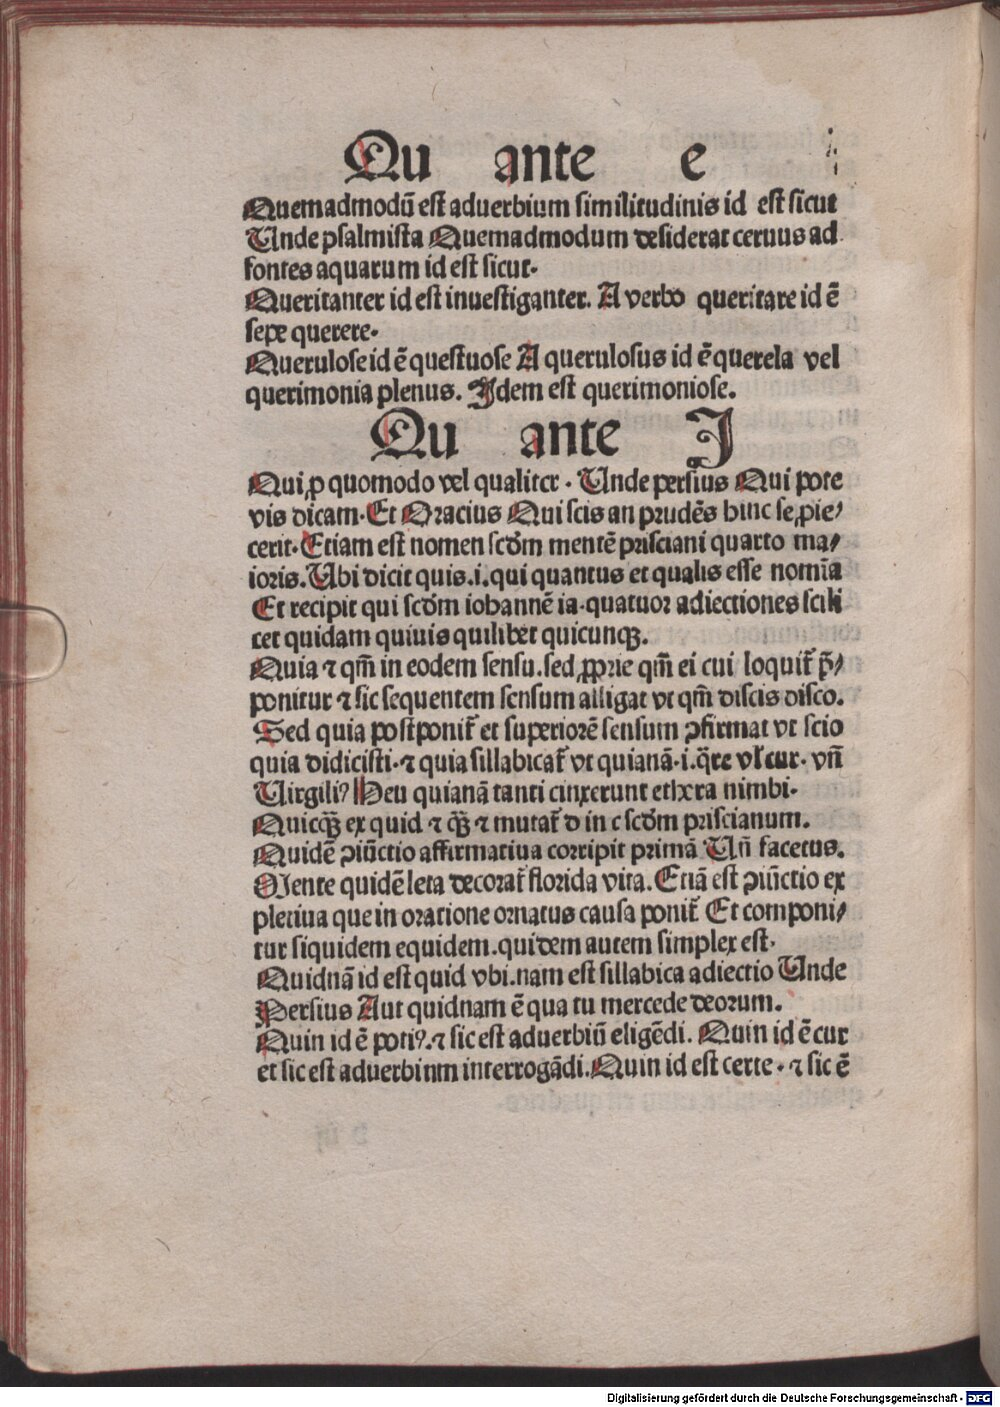 Qu ante e
Quemadmodū est aduerbium similitudinis id est sicut
Unde psalmista Quemadmodum desiderat ceruus ad
fontes aquarum id est sicut.
Queritanter id est inuestiganter. A verbo queritare id ē
sepe querere.
Querulose id ē questuose A querulosus id ē querela vel
querimonia plenus. Idem est querimoniose.
Qu ante I
Qui ꝓ quomodo vel qualiter. Unde persius Qui pote
vis dicam. Et Oracius Qui scis an prudēs huic se ꝓie/
cerit. Etiam est nomen scd̄m mentē prisciani quarto ma/
ioris. Ubi dicit quis .i. qui quantus et qualis esse nomīa
Et recipit qui scd̄m iohannē ia. quatuor adiectiones scili
cet quidam quiuis quilibet quicunqꝫ.
Quia ⁊ qm̄ in eodem sensu. sed ꝓprie qm̄ ei cui loquit̄ p̄/
ponitur ⁊ sic sequentem sensum alligat vt qm̄ discis disco.
Sed quia postponit̄ et superiorē sensum ꝯfirmat vt scio
quia didicisti. ⁊ quia sillabicat̄ vt quianā .i. q̄re vl̄ cur. vn̄
Uirgiliꝰ Heu quianā tanti cinxerunt ethera nimbi.
Quicqꝫ ex quid ⁊ qꝫ ⁊ mutat̄ d in c scd̄m priscianum.
Quidē ꝯiūctio affirmatiua corripit primā Un̄ facetus.
Mente quidē leta decorat̄ florida vita. Etiā est ꝯiūctio ex
pletiua que in oratione ornatus causa ponit̄ Et componi/
tur siquidem equidem. quidem autem simplex est.
Quidnā id est quid vbi. nam est sillabica adiectio Unde
Persius Aut quidnam ē qua tu mercede deorum.
Quin id ē potiꝰ. ⁊ sic est aduerbiū eligēdi. Quin id ē cur
et sic est aduerbinm interrogādi. Quin id est certe. ⁊ sic ē
Digitalisierung gefördert durch die Deutsche Forschungsgemeinschaft - DFG